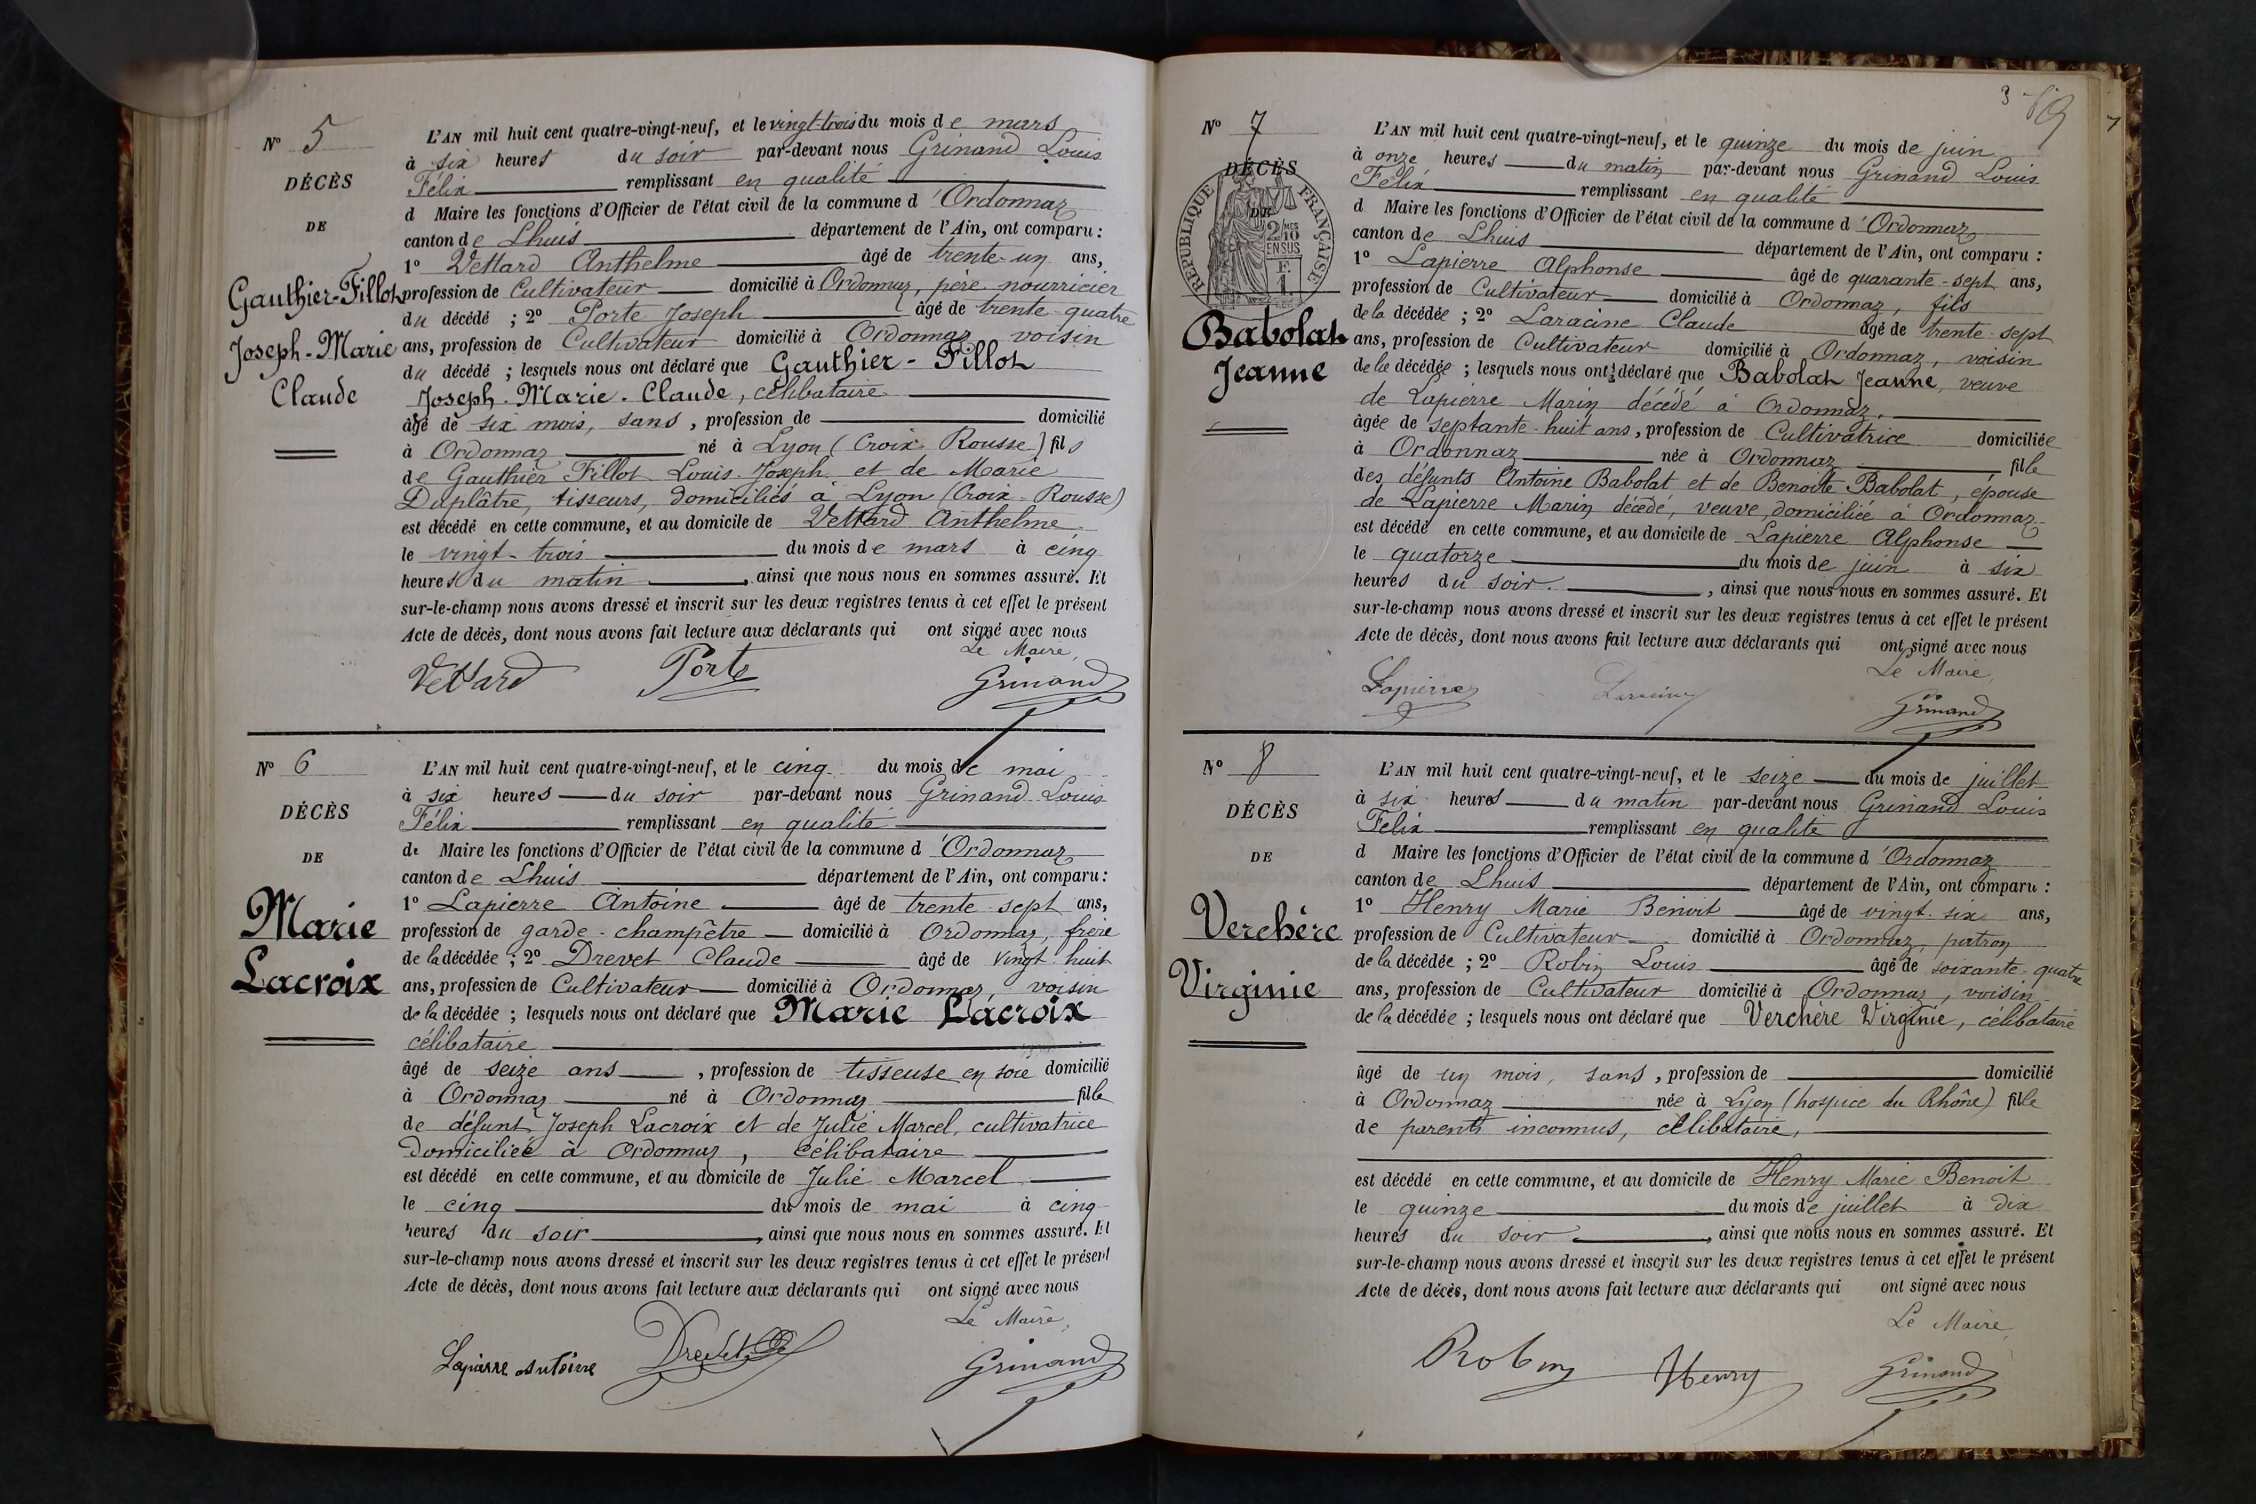 N° 5
DÉCÈS
DE
Gauthier-Fillot
Joseph-Marie
Claude
L'AN mil huit cent quatre-vingt-neuf, et le vingt-trois du mois de mars
à six heures du soir par-devant nous Grinand Louis
Félix remplissant en qualité
d Maire les fonctions d'Officier de l'état civil de la commune d'Ordonnaz
canton de Lhuis département de l'Ain, ont comparu :
1° Vettard Anthelme âgé de trente-un ans,
profession de Cultivateur domicilié à Ordonnaz, père nourricier
du décédé ; 2° Porte Joseph âgé de trente-quatre
ans, profession de Cultivateur domicilié à Ordonnaz voisin
du décédé ; lesquels nous ont déclaré que Gauthier-Fillot
Joseph-Marie-Claude, célibataire
âgé de six mois, sans, profession de domicilié
à Ordonnaz né à Lyon (Croix Rousse) fils
de Gauthier Fillot Louis-Joseph et de Marie
Duplâtre, tisseurs, domiciliés à Lyon (Croix-Rousse)
est décédé en cette commune, et au domicile de Vettard Anthelme
le vingt-trois du mois de mars à cinq
heures du matin, ainsi que nous nous en sommes assuré. Et
sur-le-champ nous avons dressé et inscrit sur les deux registres tenus à cet effet le présent
Acte de décès, dont nous avons fait lecture aux déclarants qui ont signé avec nous
Le Maire,
Vettard Porte Grinand
N° 6
DÉCÈS
DE
Marie
Lacroix
L'AN mil huit cent quatre-vingt-neuf, et le cinq du mois de mai
à six heures du soir par-devant nous Grinand Louis
Félix remplissant en qualité
de Maire les fonctions d'Officier de l'état civil de la commune d'Ordonnaz
canton de Lhuis département de l'Ain, ont comparu :
1° Lapierre Antoine âgé de trente-sept ans,
profession de garde-champêtre domicilié à Ordonnaz, frère
de la décédée ; 2° Drevet Claude âgé de vingt-huit
ans, profession de Cultivateur domicilié à Ordonnaz, voisin
de la décédée ; lesquels nous ont déclaré que Marie Lacroix
célibataire
âgé de seize ans, profession de tisseuse en soie domicilié
à Ordonnaz né à Ordonnaz fille
de défunt Joseph Lacroix et de Julie Marcel, cultivatrice
domiciliée à Ordonnaz, célibataire
est décédé en cette commune, et au domicile de Julie Marcel
le cinq du mois de mai à cinq
heures du soir, ainsi que nous nous en sommes assuré. Et
sur-le-champ nous avons dressé et inscrit sur les deux registres tenus à cet effet le présent
Acte de décès, dont nous avons fait lecture aux déclarants qui ont signé avec nous
Le Maire,
Lapierre Antoine Drevet Cl Grinand
3
7
N° 7
DÉCÈS
DE
RÉPUBLIQUE FRANÇAISE
2/10 MES
EN SUS
Babolat
Jeanne
L'AN mil huit cent quatre-vingt-neuf, et le quinze du mois de juin
à onze heures du matin par-devant nous Grinand Louis
Félix remplissant en qualité
d Maire les fonctions d'Officier de l'état civil de la commune d'Ordonnaz
canton de Lhuis département de l'Ain, ont comparu :
1° Lapierre Alphonse âgé de quarante-sept ans,
profession de Cultivateur domicilié à Ordonnaz, fils
de la décédée ; 2° Laracine Claude âgé de trente-sept
ans, profession de Cultivateur domicilié à Ordonnaz, voisin
de la décédée ; lesquels nous ont déclaré que Babolat Jeanne, veuve
de Lapierre Marin décédé à Ordonnaz.
âgée de septante-huit ans, profession de Cultivatrice domiciliée
à Ordonnaz née à Ordonnaz fille
des défunts Antoine Babolat et de Benoîte Babolat, épouse
de Lapierre Marin décédé, veuve, domiciliée à Ordonnaz
est décédé en cette commune, et au domicile de Lapierre Alphonse
le quatorze du mois de juin à six
heures du soir., ainsi que nous nous en sommes assuré. Et
sur-le-champ nous avons dressé et inscrit sur les deux registres tenus à cet effet le présent
Acte de décès, dont nous avons fait lecture aux déclarants qui ont signé avec nous
Le Maire,
Lapierre Laracine Grinand
N° 8
DÉCÈS
DE
Verchère
Virginie
L'AN mil huit cent quatre-vingt-neuf, et le seize du mois de juillet
à six heures du matin par-devant nous Grinand Louis
Félix remplissant en qualité
d Maire les fonctions d'Officier de l'état civil de la commune d'Ordonnaz
canton de Lhuis département de l'Ain, ont comparu :
1° Henry Marie Benoit âgé de vingt-six ans,
profession de Cultivateur domicilié à Ordonnaz, patron
de la décédée ; 2° Robin Louis âgé de soixante-quatre
ans, profession de Cultivateur domicilié à Ordonnaz, voisin
de la décédée ; lesquels nous ont déclaré que Verchère Virginie, célibataire
âgé de un mois, sans, profession de domicilié
à Ordonnaz née à Lyon (hospice du Rhône) fille
de parents inconnus, célibataire,
est décédé en cette commune, et au domicile de Henry Marie Benoit
le quinze du mois de juillet à dix
heures du soir, ainsi que nous nous en sommes assuré. Et
sur-le-champ nous avons dressé et inscrit sur les deux registres tenus à cet effet le présent
Acte de décès, dont nous avons fait lecture aux déclarants qui ont signé avec nous
Le Maire,
Robin Henry Grinand